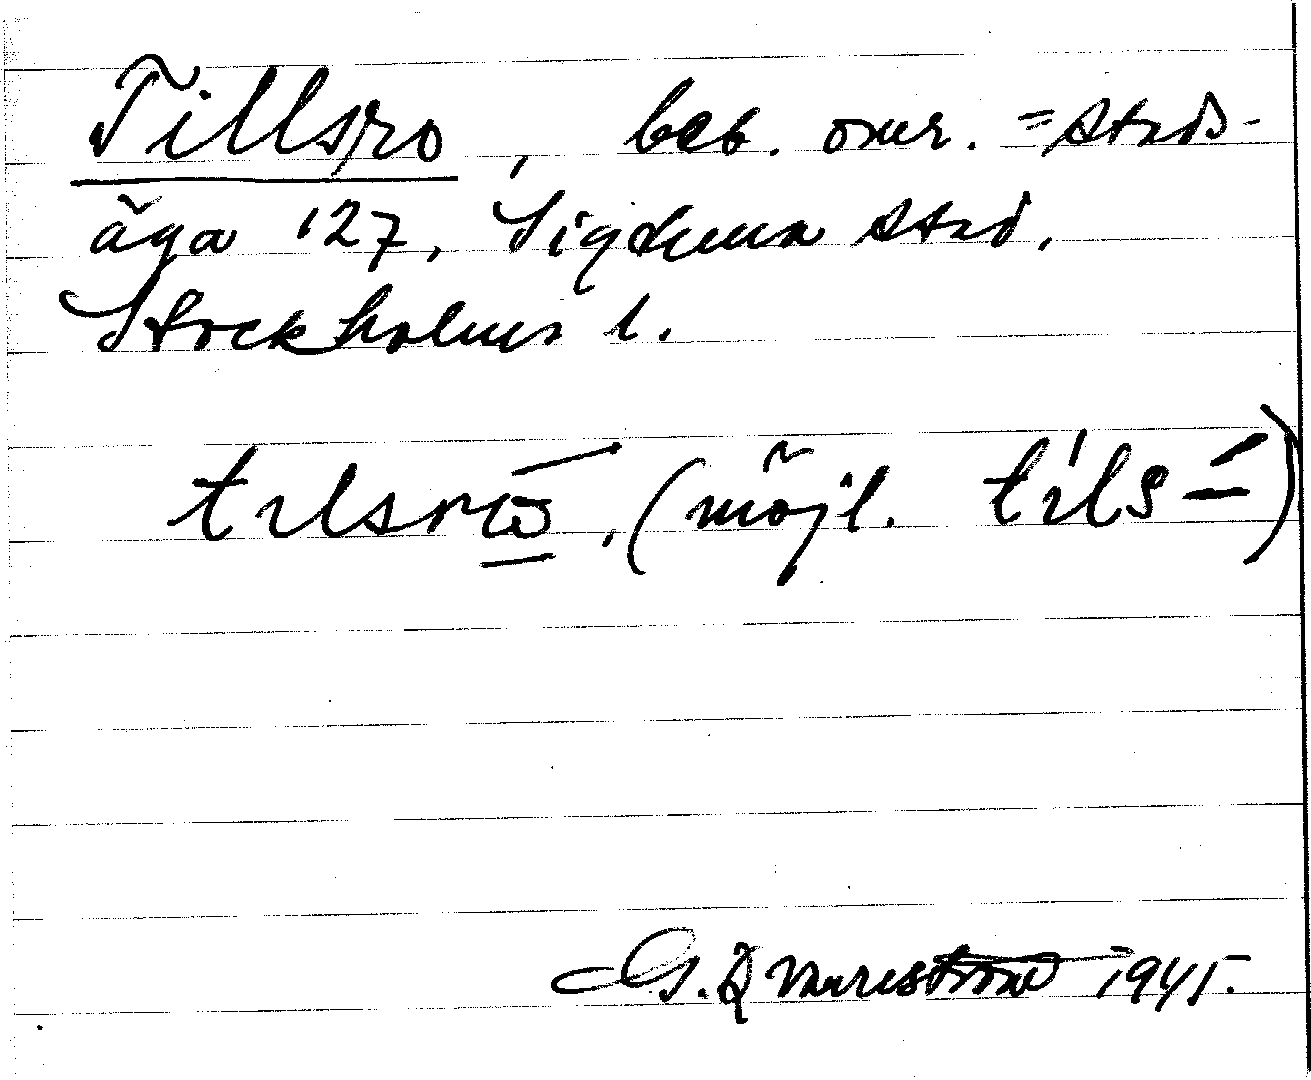 Tillsro, beb. omr. = stads-
äga 127, Sigtuna stad,
Stockholms l.
tilsrω, (möjl. tils-)
G. 1945.